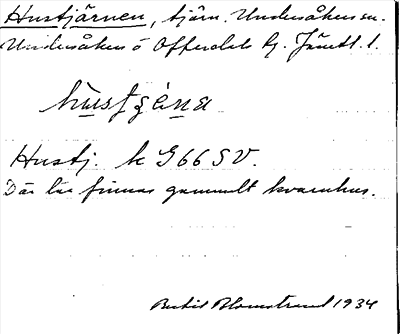 Hustjärnen, tjärn. Undersåkers sn.
Undersåkers o Offerdals tg. Jämtl. l.
Hustj. k G66 SV.
Där lär finnas gammalt kvarnhus.
Bertil Blomstrand 1934